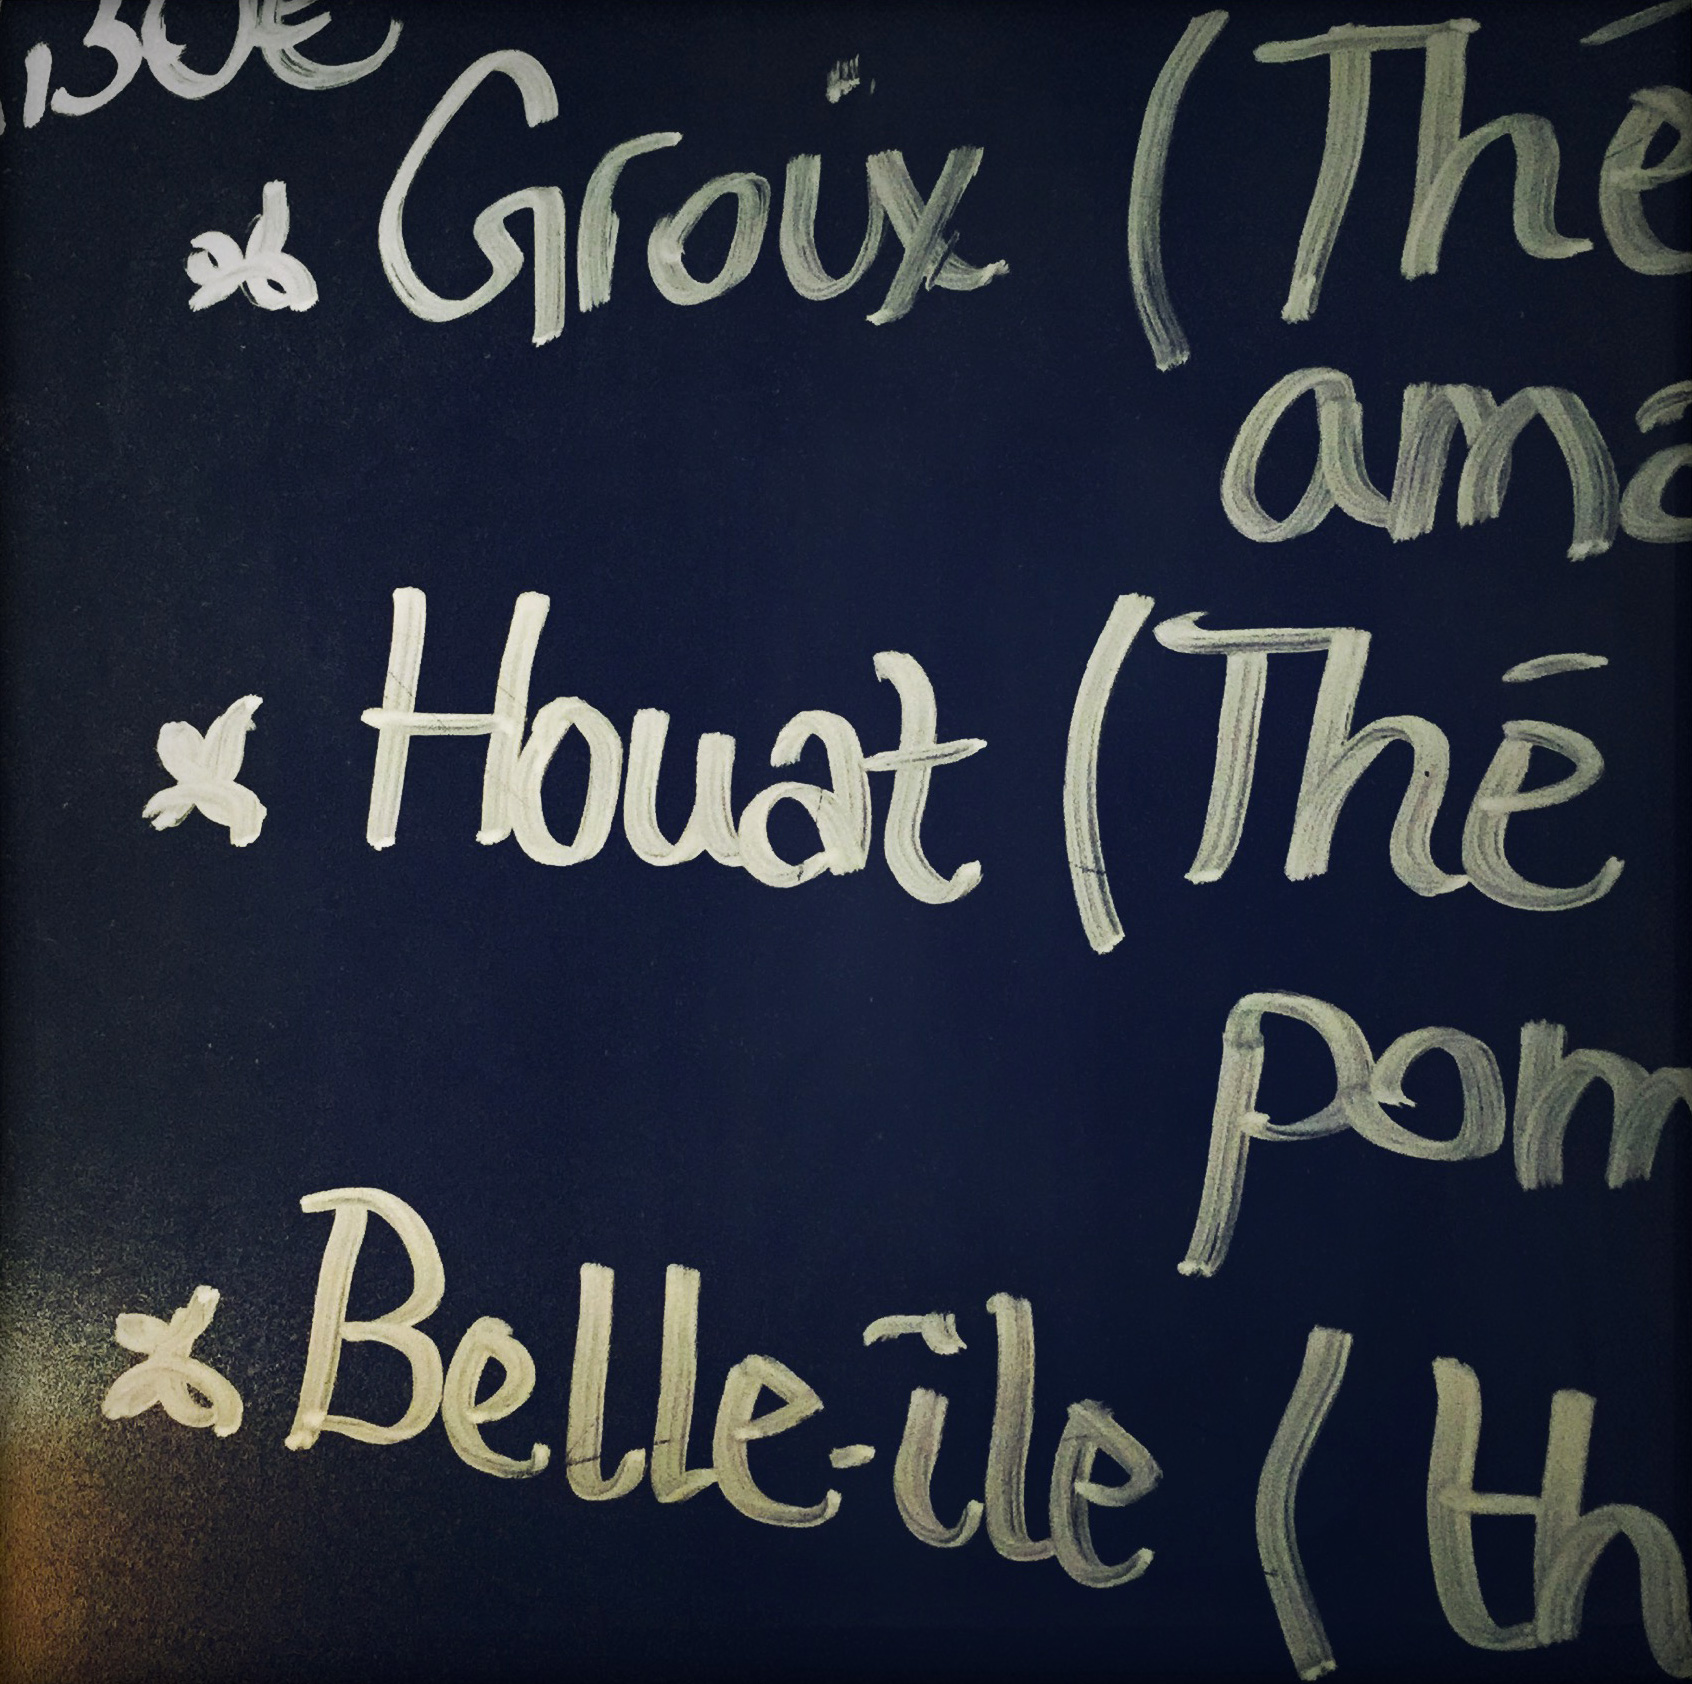 * Groix (Thé
ama
* Houat (Thé
pom
* Belle-île (th